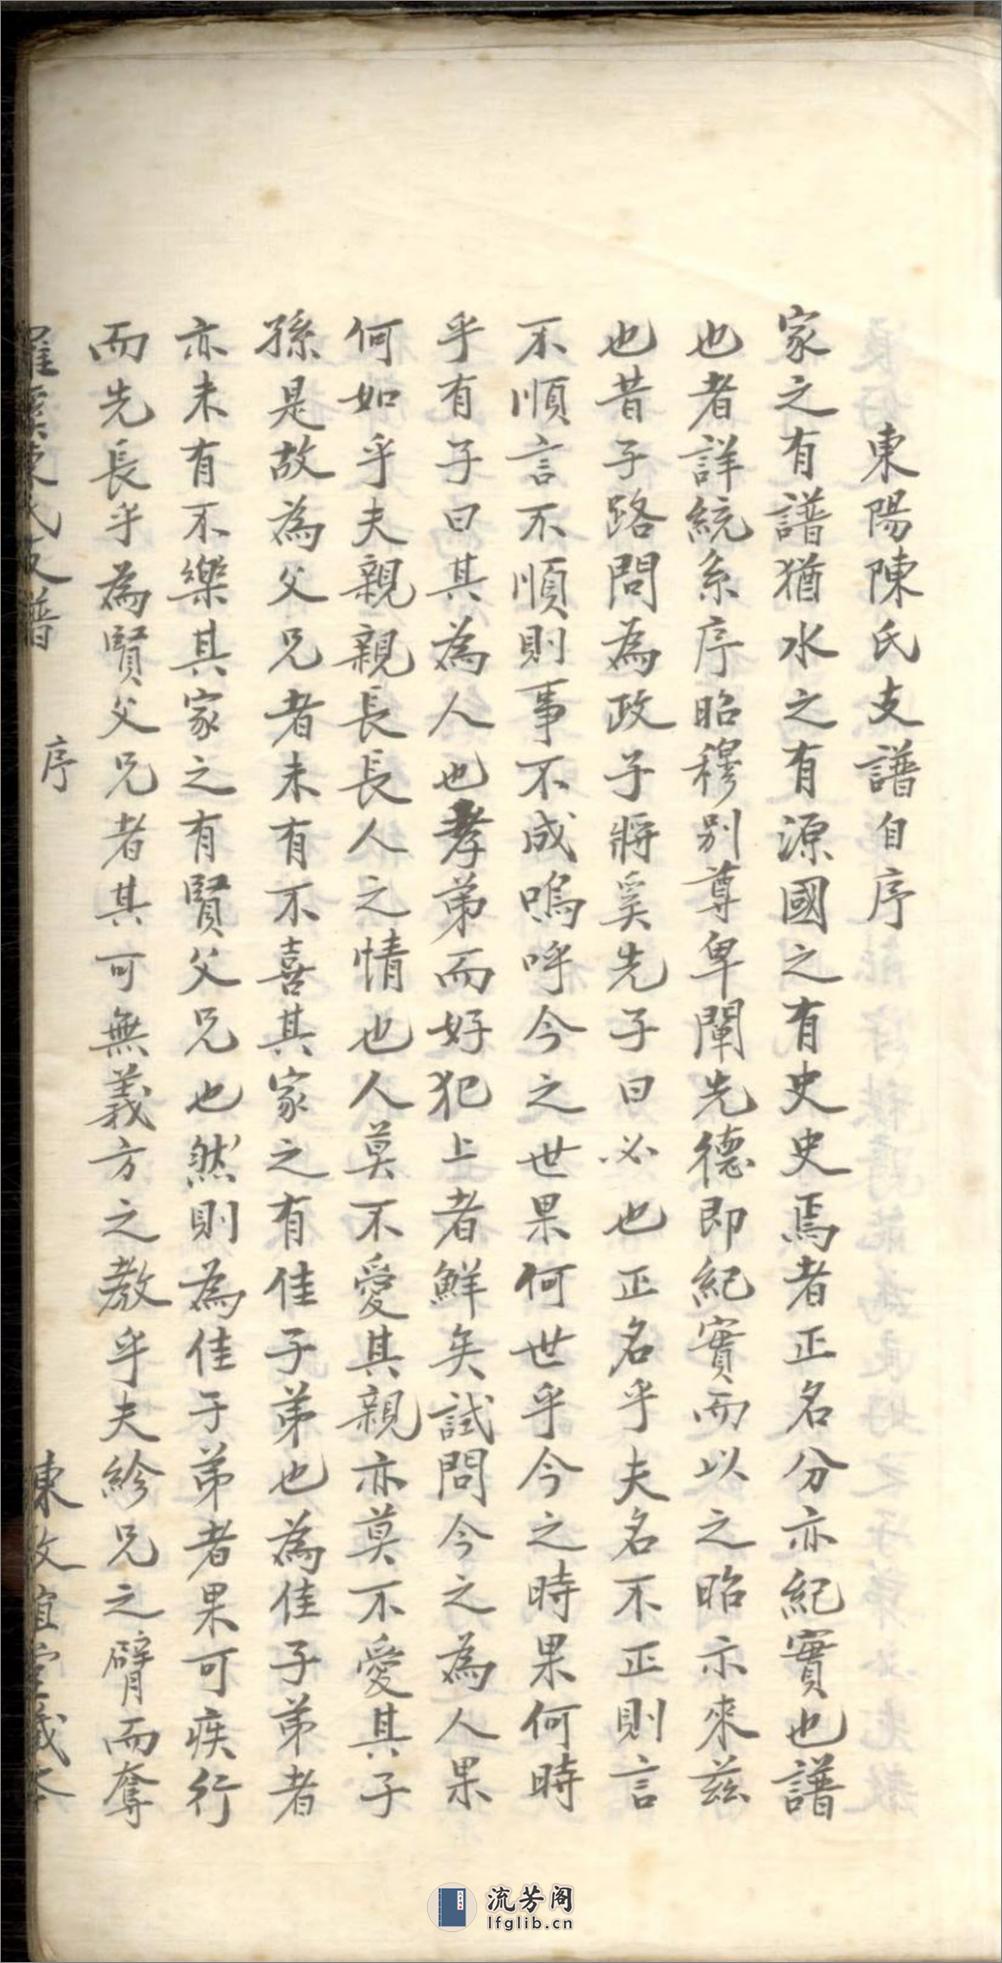 東陽陳氏支譜自序
家之有譜猶水之有源國之有史史焉者正名分亦紀實也譜
也者詳統系序昭穆別尊卑闡先德即紀實而以之昭示來茲
也昔子路問為政子將奚先子曰必也正名乎夫名不正則言
不順言不順則事不成嗚呼今之世果何世乎今之時果何時
乎有子曰其為人也孝弟而好犯上者鮮矣試問今之為人果
何如乎夫親親長長人之情也人莫不愛其親亦莫不愛其子
孫是故為父兄者未有不喜其家之有佳子弟也為佳子弟者
亦未有不樂其家之有賢父兄也然則為佳子弟者果可疾行
而先長乎為賢父兄者其可無義方之教乎夫紾兄之臂而奪
陳氏支譜 序 陳敦誼堂藏本
流芳阁
lfglib.cn